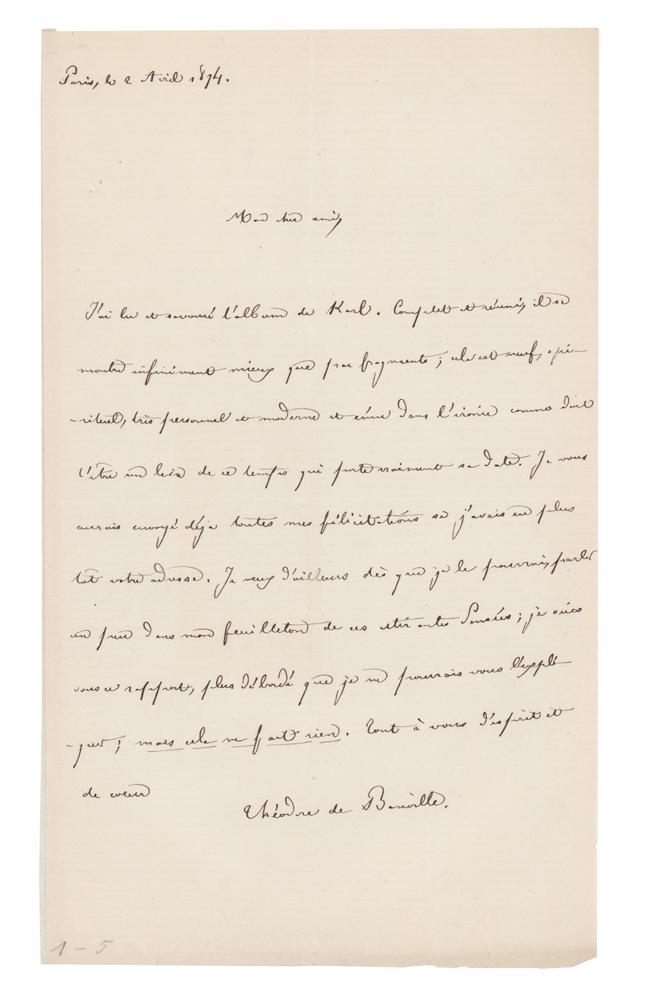 Paris, le 2 Avril 1874.
Mon cher ami,
J'ai lu et savouré l'album de Karl. Complet et réuni, il se
montre infiniment mieux que par fragments ; cela est neuf, spi-
-rituel, très personnel et moderne et ému dans l'ironie comme doit
l'être un livre de ce temps qui porte vraiment sa date. Je vous
aurais envoyé déjà toutes mes félicitations si j'avais eu plus
tôt votre adresse. Je veux d'ailleurs dès que je le pourrai, parler
un peu dans mon feuilleton de ces Pensées ; je suis
sous ce rapport, plus débordé que je ne pourrais vous l'expli-
-quer ; mais cela ne fait rien. Tout à vous d'esprit et
de cœur
Théodore de Banville.
1 - 5